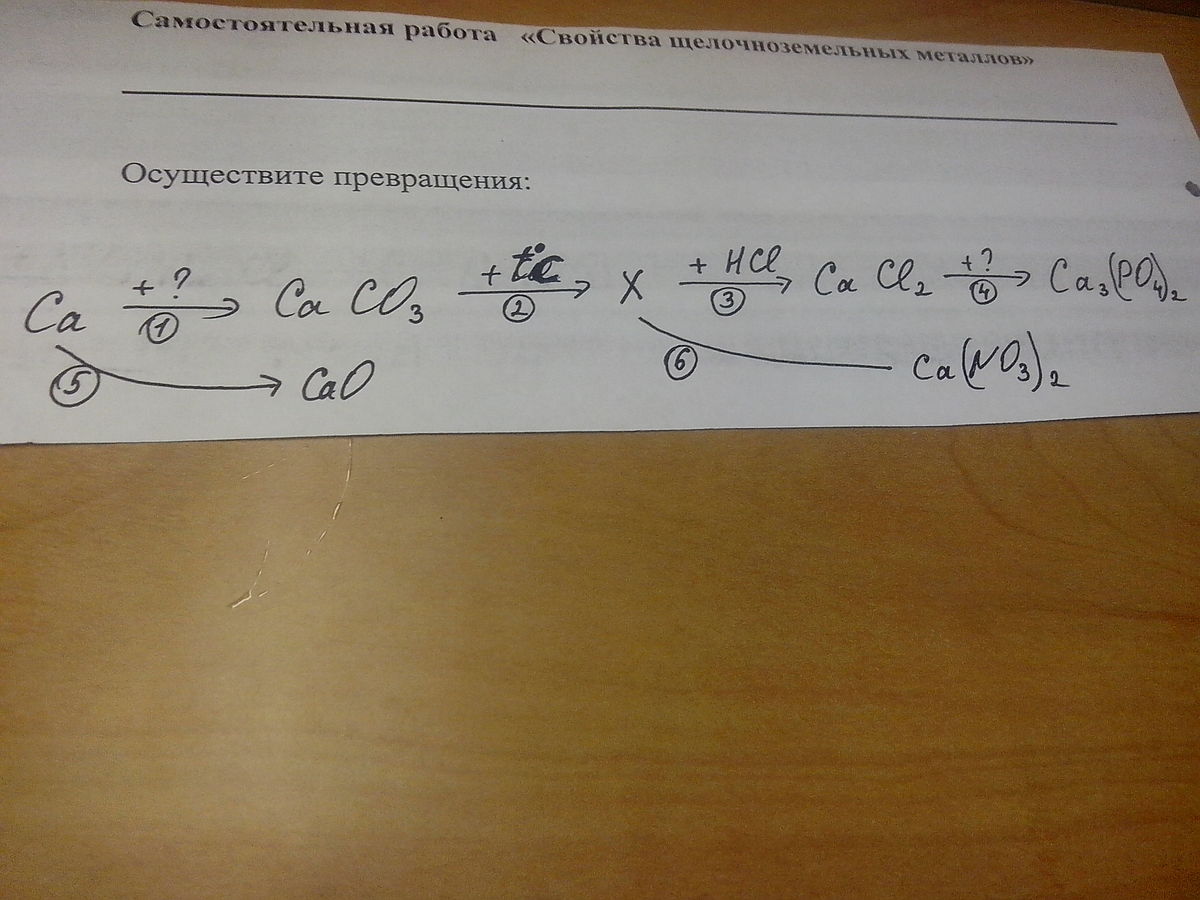 Самостоятельная работа «Свойства щелочноземельных металлов»
Осуществите превращения:
Ca + ? → ① CaCO₃ + t°C → ② X + HCl → ③ CaCl₂ + ? → ④ Ca₃(PO₄)₂
⑤ → CaO ⑥ Ca(NO₃)₂